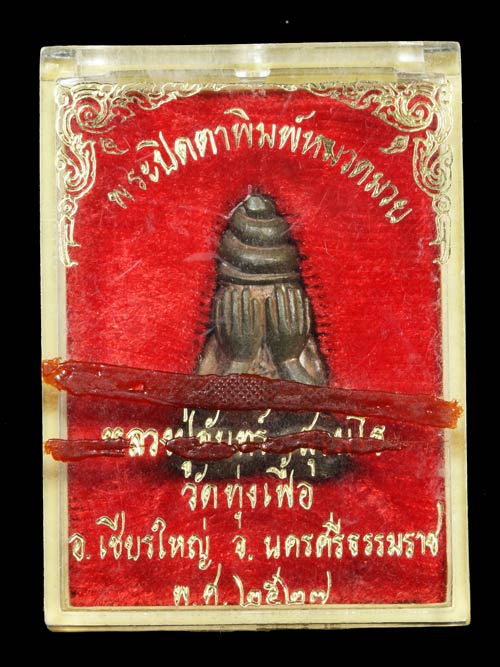 พระปิดตาพิมพ์หมวดมวย
หลวงปู่จันทร์
วัดทุ่งเฟื้อ
อ.เชียรใหญ่ จ.นครศรีธรรมราช
พ.ศ.๒๕๒๗